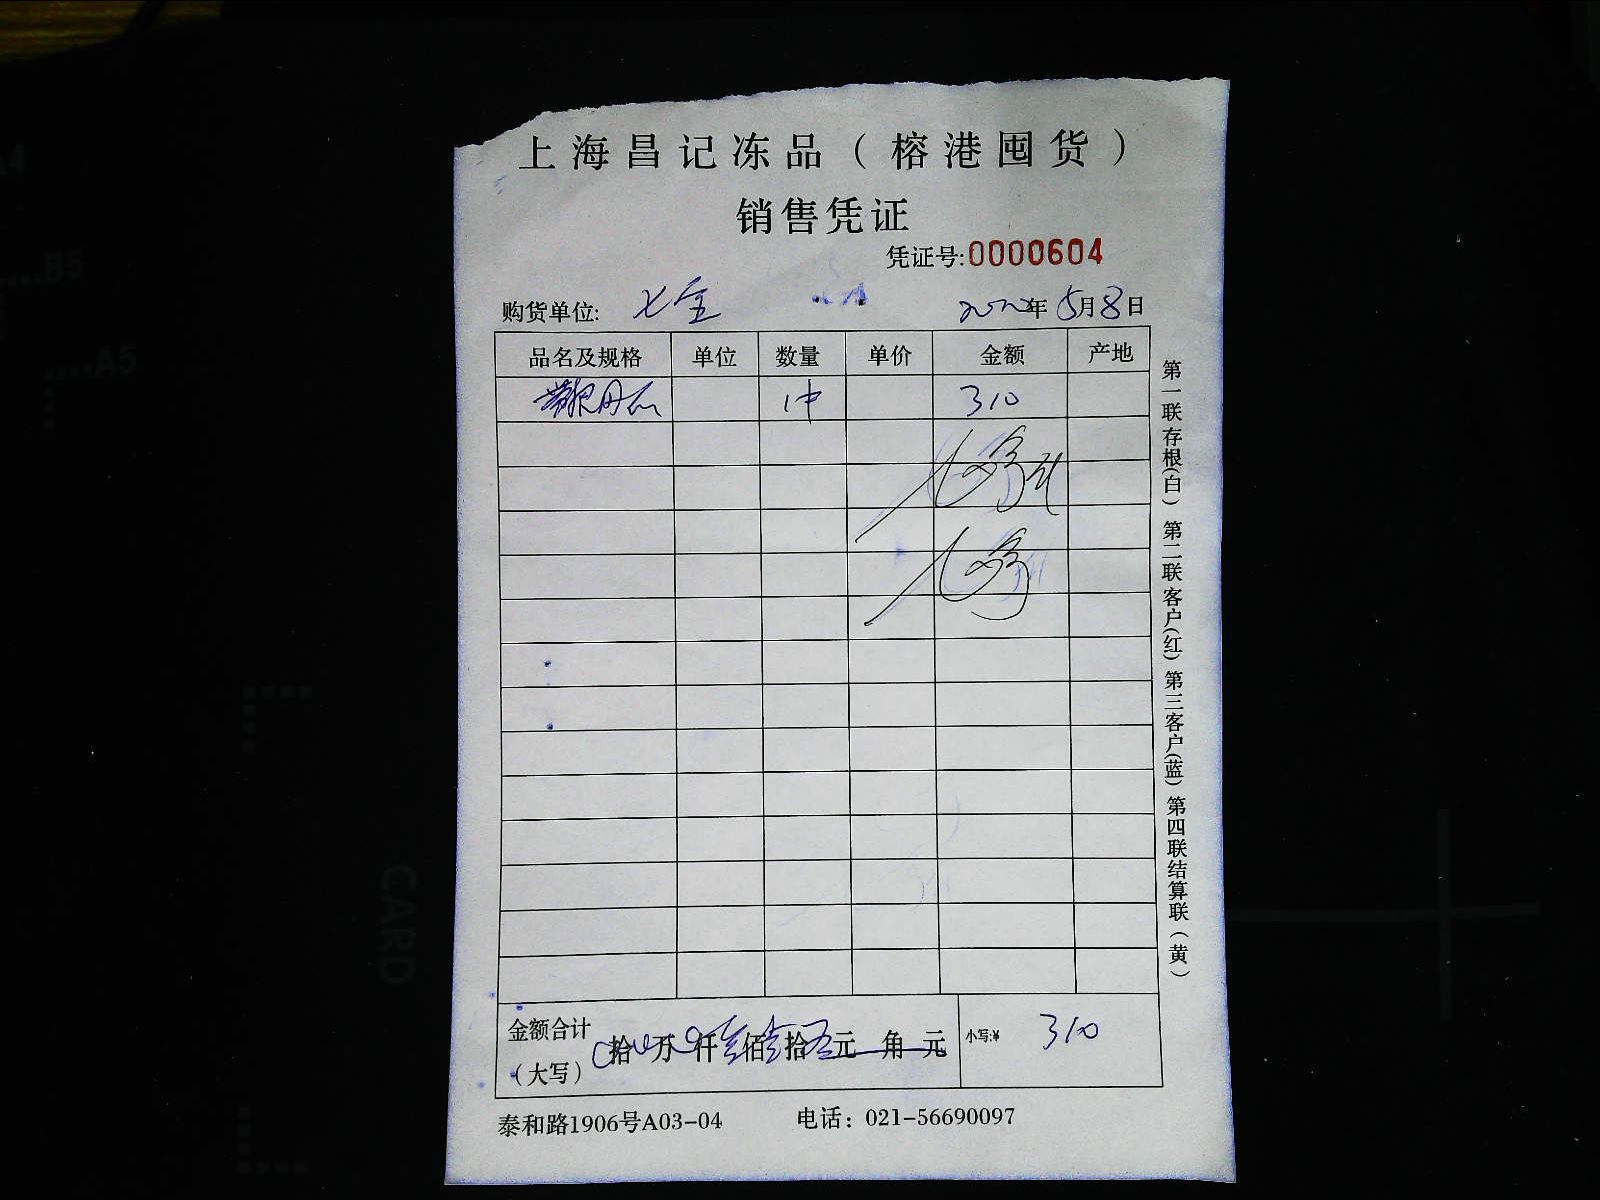 上海昌记冻品（榕港囤货）
销售凭证
凭证号:0000604
购货单位: 七宝 2022年5月8日
品名及规格 单位 数量 单价 金额 产地
1件 310
金额合计 拾 万 仟 佰 拾 元 角 元 小写:¥ 310
（大写）
泰和路1906号A03-04 电话：021-56690097
第一联存根(白) 第二联客户(红) 第三客户(蓝) 第四联结算联（黄）
A4
B5
A5
CARD